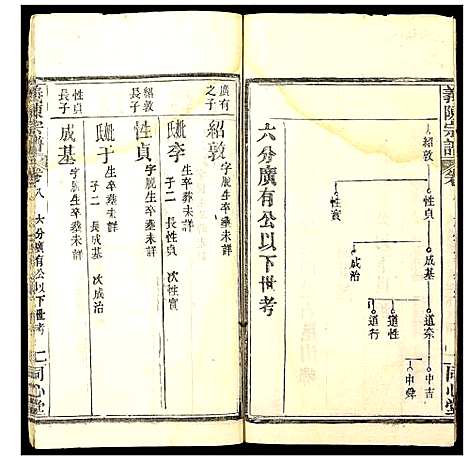 義陳宗譜
卷
紹敦
性貞
性實
成基
成治
道奈
道性
道行
中吉
中舜
同心堂
六分廣有公以下世考
廣有之子
紹敦 字脫生卒葬未詳
妣李 生卒葬未詳
子二 長性貞 次性實
紹敦長子
性貞 字脫生卒葬未詳
妣于 生卒葬未詳
子二 長成基 次成治
性貞長子
成基 字脫生卒葬未詳
義陳宗譜
卷八 六分廣有公以下世考
同心堂